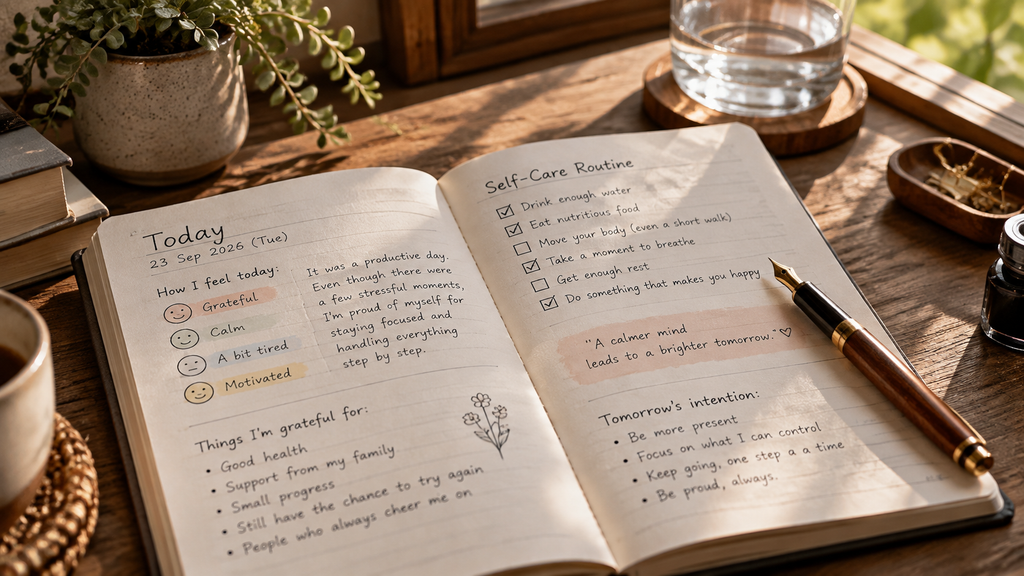 Today
23 Sep 2026 (Tue)
How I feel today:
Grateful
Calm
A bit tired
Motivated
It was a productive day.
Even though there were
a few stressful moments,
I'm proud of myself for
staying focused and
handling everything
step by step.
Things I'm grateful for:
• Good health
• Support from my family
• Small progress
• Still have the chance to try again
• People who always cheer me on
Self-Care Routine
☑ Drink enough water
☑ Eat nutritious food
☐ Move your body (even a short walk)
☑ Take a moment to breathe
☐ Get enough rest
☑ Do something that makes you happy
"A calmer mind
leads to a brighter tomorrow." ♡
Tomorrow's intention:
• Be more present
• Focus on what I can control
• Keep going, one step a a time
• Be proud, always.